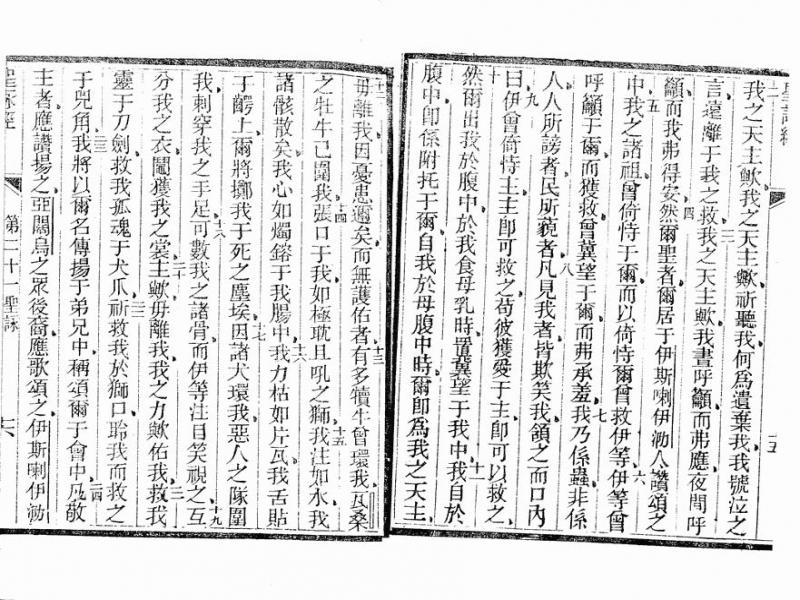 聖詠經
我之天主歟我之天主歟祈聽我何爲遺棄我我號泣之
言遠離于我之救我之天主歟我晝呼籲而弗應夜間呼
四
籲而我弗得安然爾聖者爾居于伊斯喇伊泐人讚頌之
五
中我之諸祖曾倚恃于爾而以倚恃爾曾救伊等伊等曾
六
呼籲于爾而獲救曾冀望于爾而弗承羞我乃係蟲非係
七
人人所謗者民所藐者凡見我者皆欺笑我頷之而口內
八
曰伊曾倚恃主主卽可救之苟彼獲愛于主卽可以救之
九
然爾出我於腹中於我食母乳時置冀望于我中我自於
十
十一
腹中卽係附托于爾自我於母腹中時爾卽爲我之天主
十二
毋離我因憂患邇矣而無護佑者有多犢牛曾環我瓦桑
十三
之牡牛已圍我張口于我如極耽且吼之獅我注如水我
十四
十五
諸骸散矣我心如燭鎔于我腸中我力枯如片瓦我舌貼
十六
于齶上爾將擲我于死之塵埃因諸犬環我惡人之隊圍
十七
我刺穿我之手足可數我之諸骨而伊等注目笑視之互
十八
十九
分我之衣鬮獲我之裳主歟毋離我我之力歟佑我救我
二十
靈于刀劍救我孤魂于犬爪祈救我於獅口聆我而救之
于兕角我將以爾名傳揚于弟兄中稱頌爾于會中凡敬
二三
二四
主者應讚揚之亞闊烏之眾後裔應歌頌之伊斯喇伊泐
聖詠經
第二十一聖詠